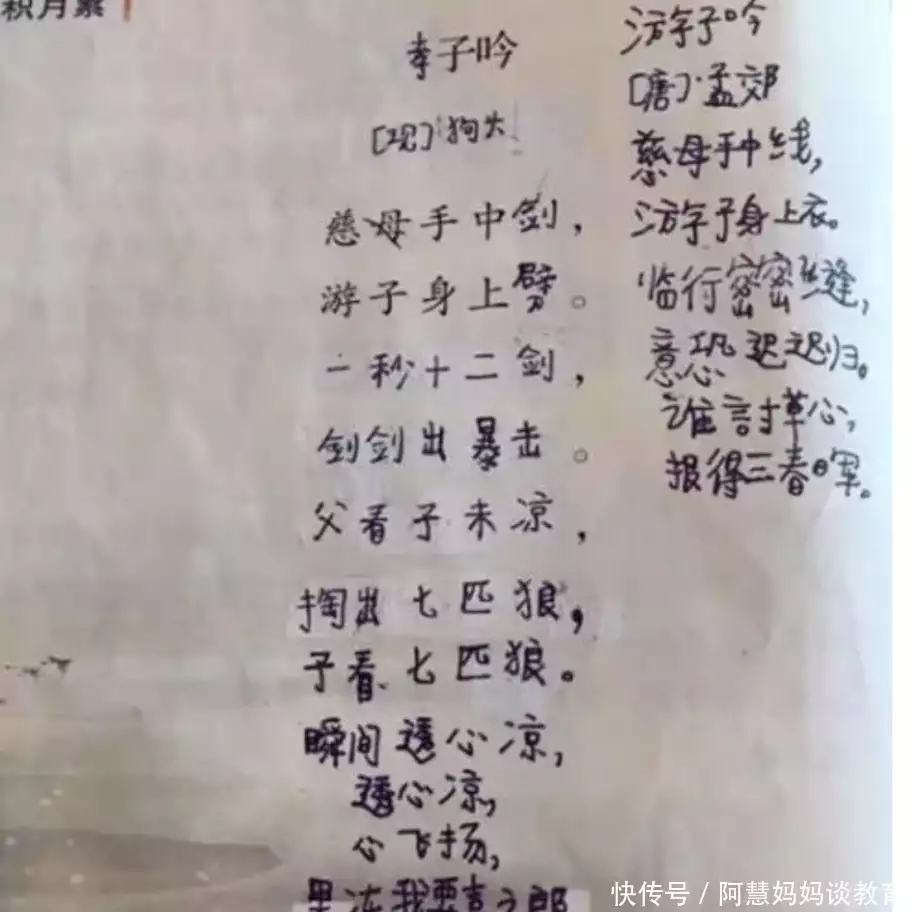 积月累
孝子吟
[现]
慈母手中剑，
游子身上劈。
一秒十二剑，
剑剑出暴击。
父看子未凉，
掏出七匹狼，
子看七匹狼。
瞬间透心凉，
透心凉，
心飞扬，
果冻我要喜之郎
游子吟
[唐]·孟郊
慈母手中线，
游子身上衣。
临行密密缝，
意恐迟迟归。
谁討草心，
报得三春晖。
快传号 / 阿慧妈妈谈教育